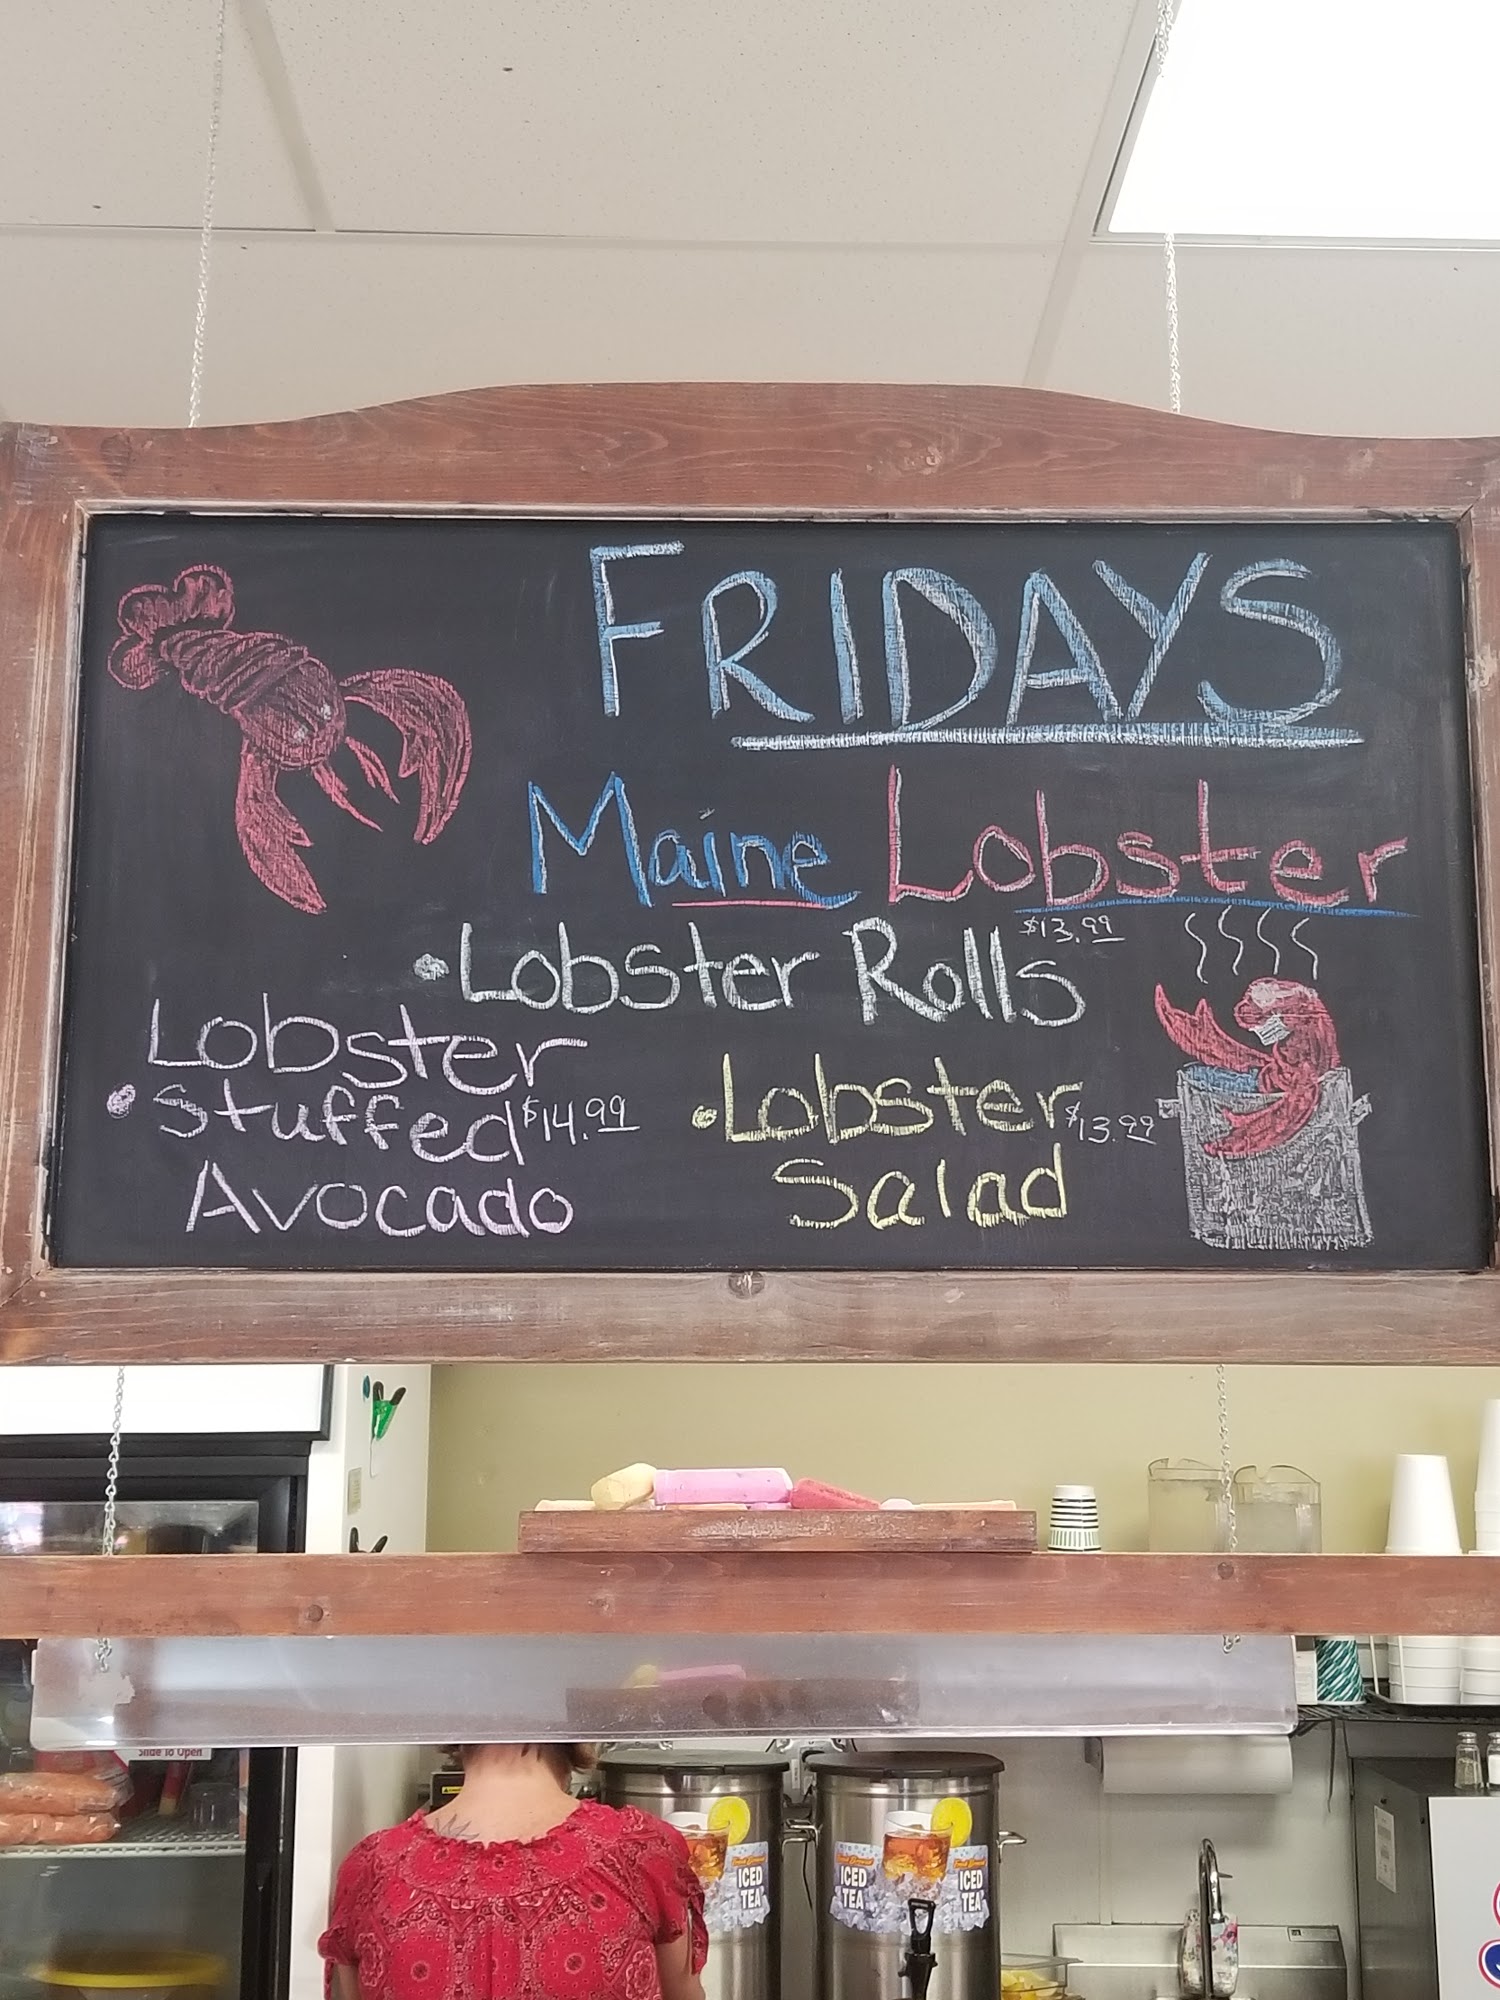 FRIDAYS
Maine Lobster
•Lobster Rolls $13.99
Lobster
•Stuffed $14.99
Avocado
•Lobster $13.99
Salad
Slide To Open
ICED
TEA
ICED
TEA
ICED
TEA